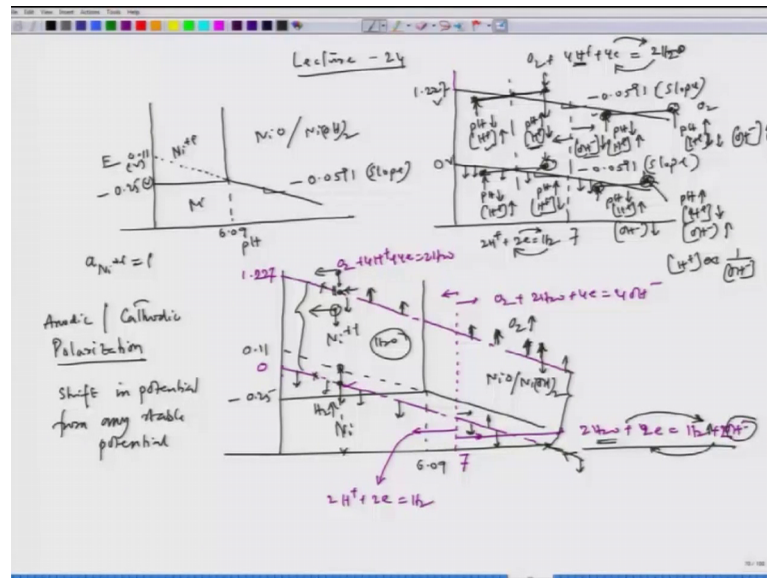 Lecture - 24
O2 + 4H+ + 4e = 2H2O
1.227
V
-0.0591 (Slope)
O2
pH↓
[H+]↑
pH↑
[H+]↓ [OH-]↑
0V
-0.0591 (Slope)
pH↓
[H+]↑
pH↑
[H+]↓
[OH-]↑
2H+ + 2e = H2
7
[H+] ∝ 1/[OH-]
E
(V)
0.11
-0.25
Ni++
NiO/Ni(OH)2
-0.0591 (Slope)
Ni
6.09
pH
aNi++ = 1
Anodic / Cathodic
Polarization
Shift in potential
from any stable
potential
1.227
O2 + 4H+ + 4e = 2H2O
O2 + 2H2O + 4e = 4OH-
O2↑
Ni++
H2O
NiO/Ni(OH)2
0.11
0
-0.25
H2↑
Ni
2H2O + 2e = H2 + 2OH-
6.09
7
2H+ + 2e = H2